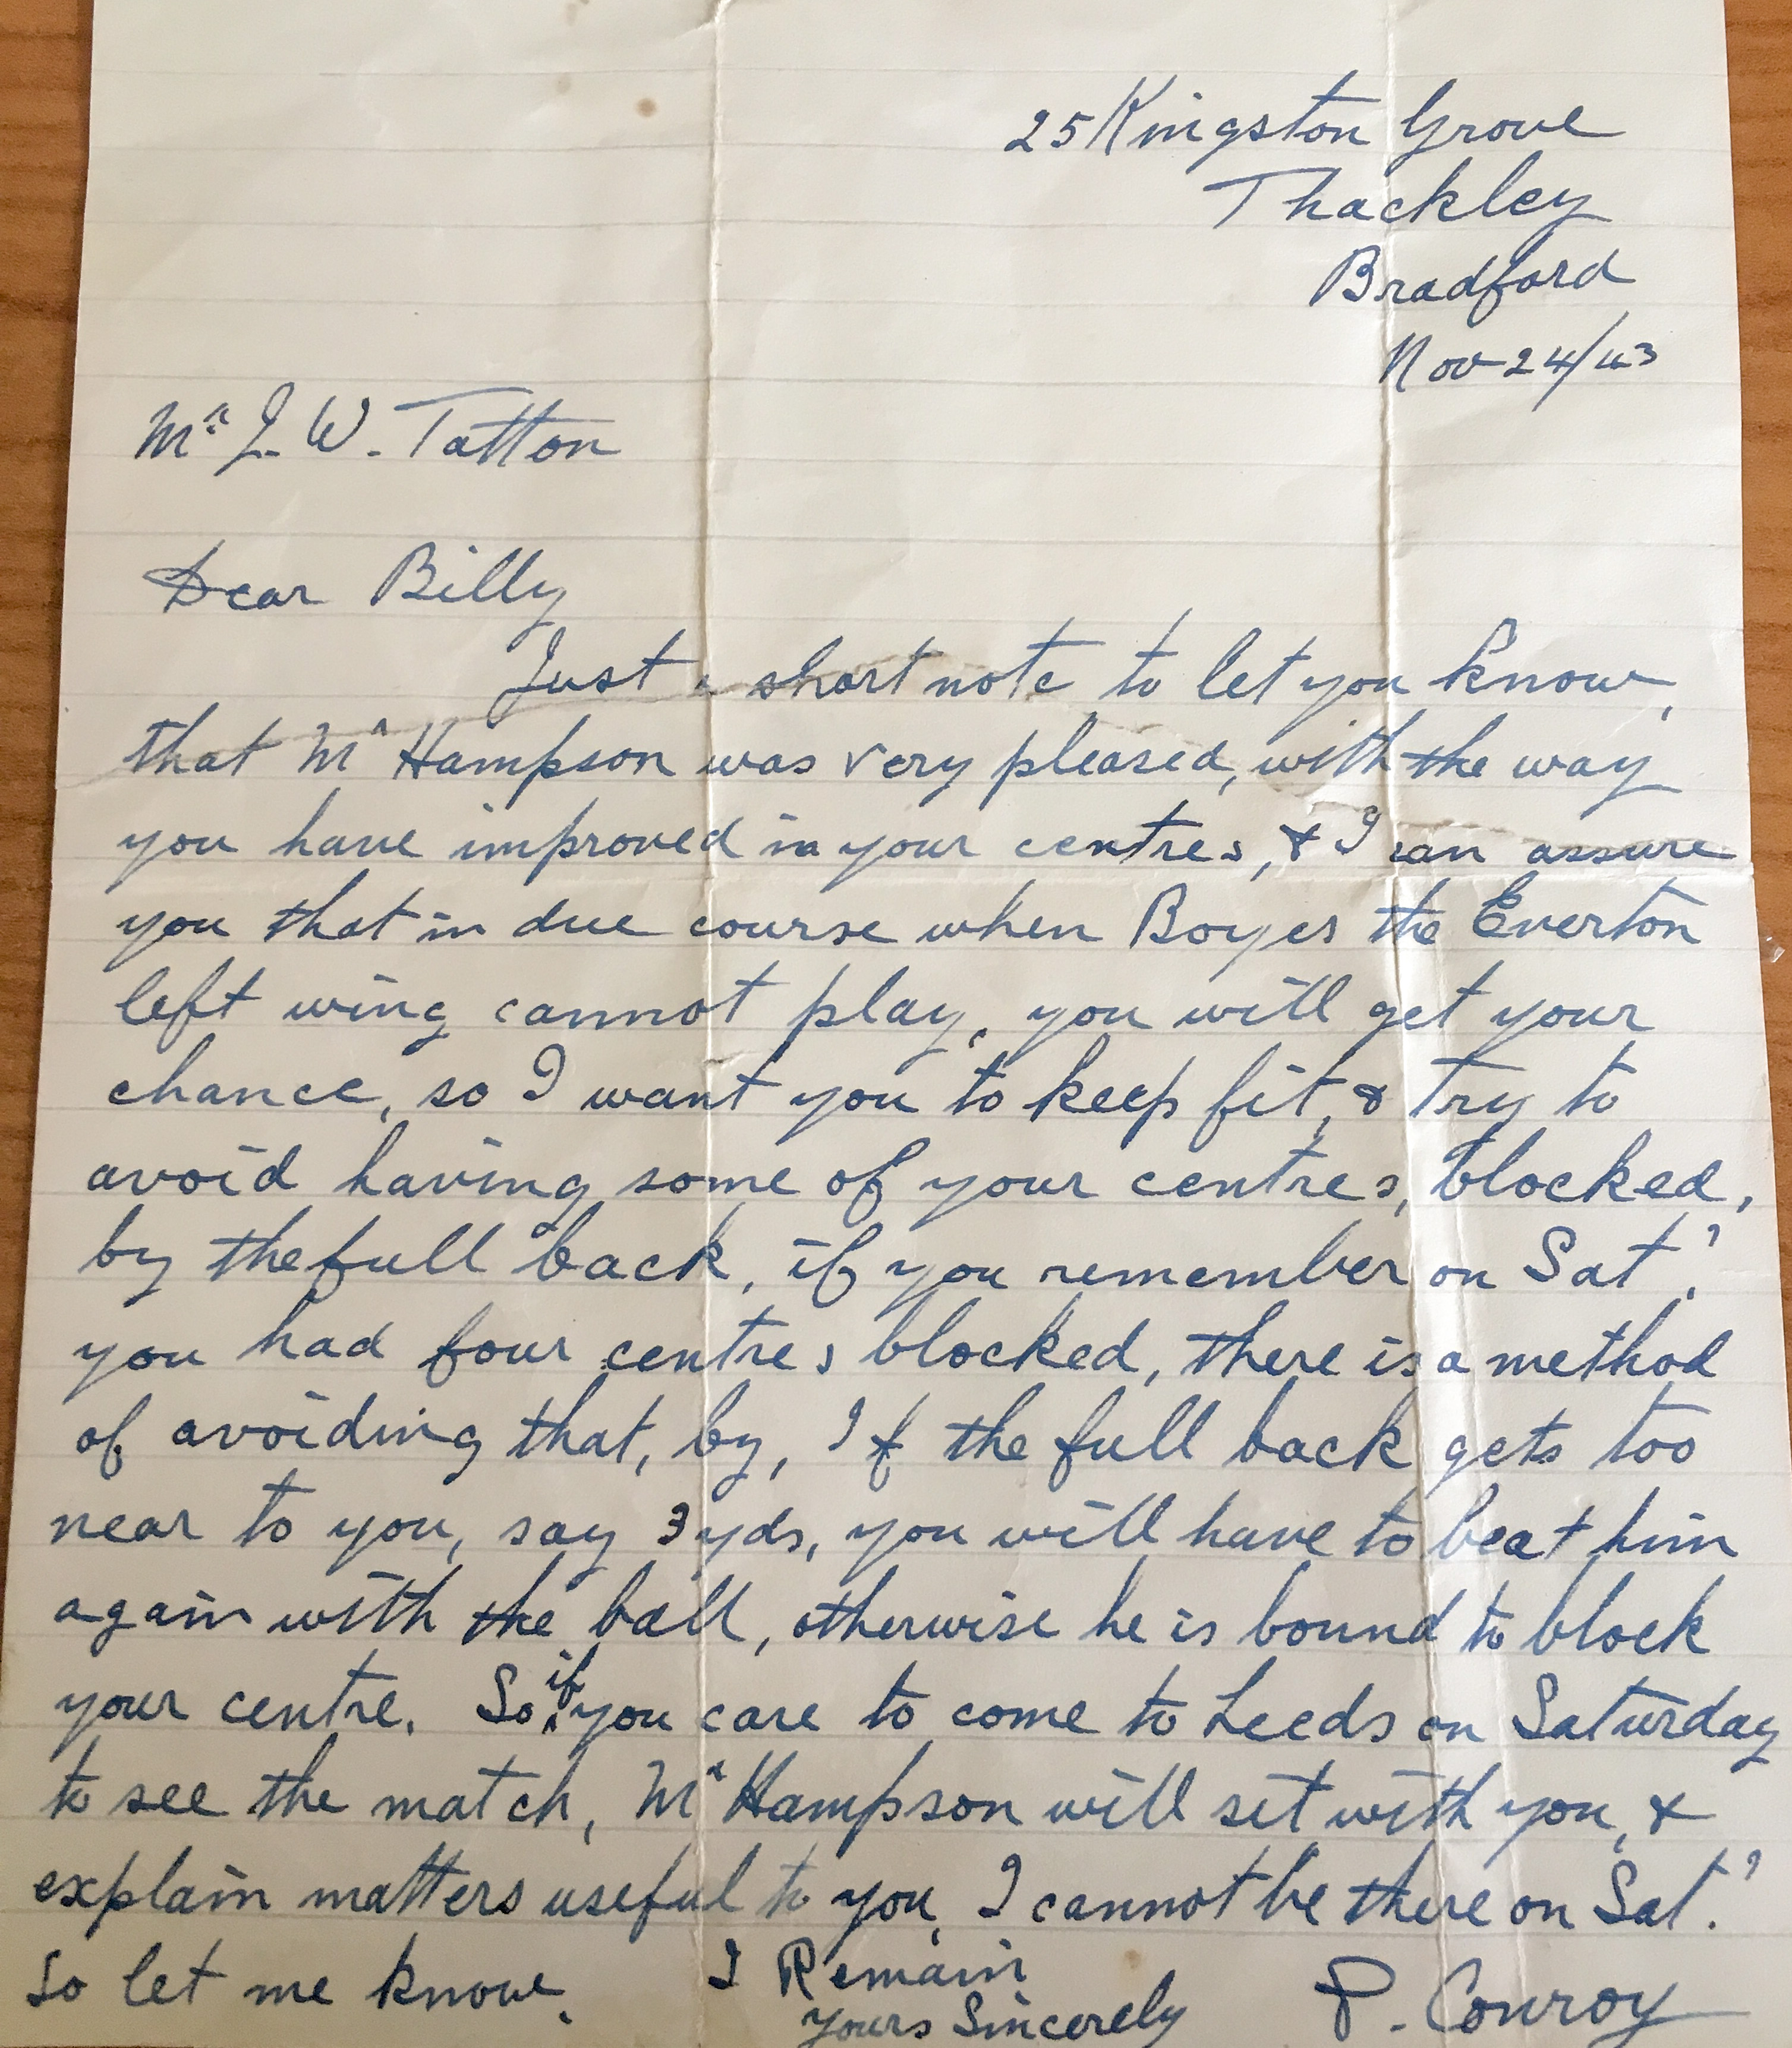 25 Kingston Grove
Thackley
Bradford
Nov 24/43
Mr J. W. Tatton
Dear Billy
Just a short note to let you know,
that Mr Hampson was very pleased, with the way
you have improved in your centres, & I can assure
you that in due course when Boyes the Everton
left wing cannot play, you will get your
chance, so I want you to keep fit, & try to
avoid having some of your centres, blocked,
by the full back, if you remember on Sat?
you had four centres blocked, there is a method
of avoiding that, by, If the full back gets too
near to you, say 3 yds, you will have to beat him
again with the ball, otherwise he is bound to block
your centre. So if you care to come to Leeds on Saturday
to see the match, Mr Hampson will sit with you, &
explain matters useful to you, I cannot be there on Sat.?
So let me know.
I Remain
Yours Sincerely
P. Conroy